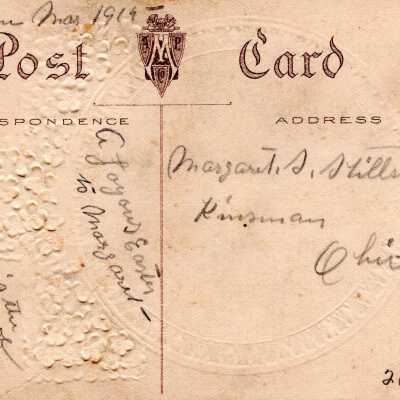 Mar 1915
Post Card
SPONDENCE
ADDRESS
A Joyous Easter
to Margaret
Margaret. S. Stills
Kinsman
Ohio
2